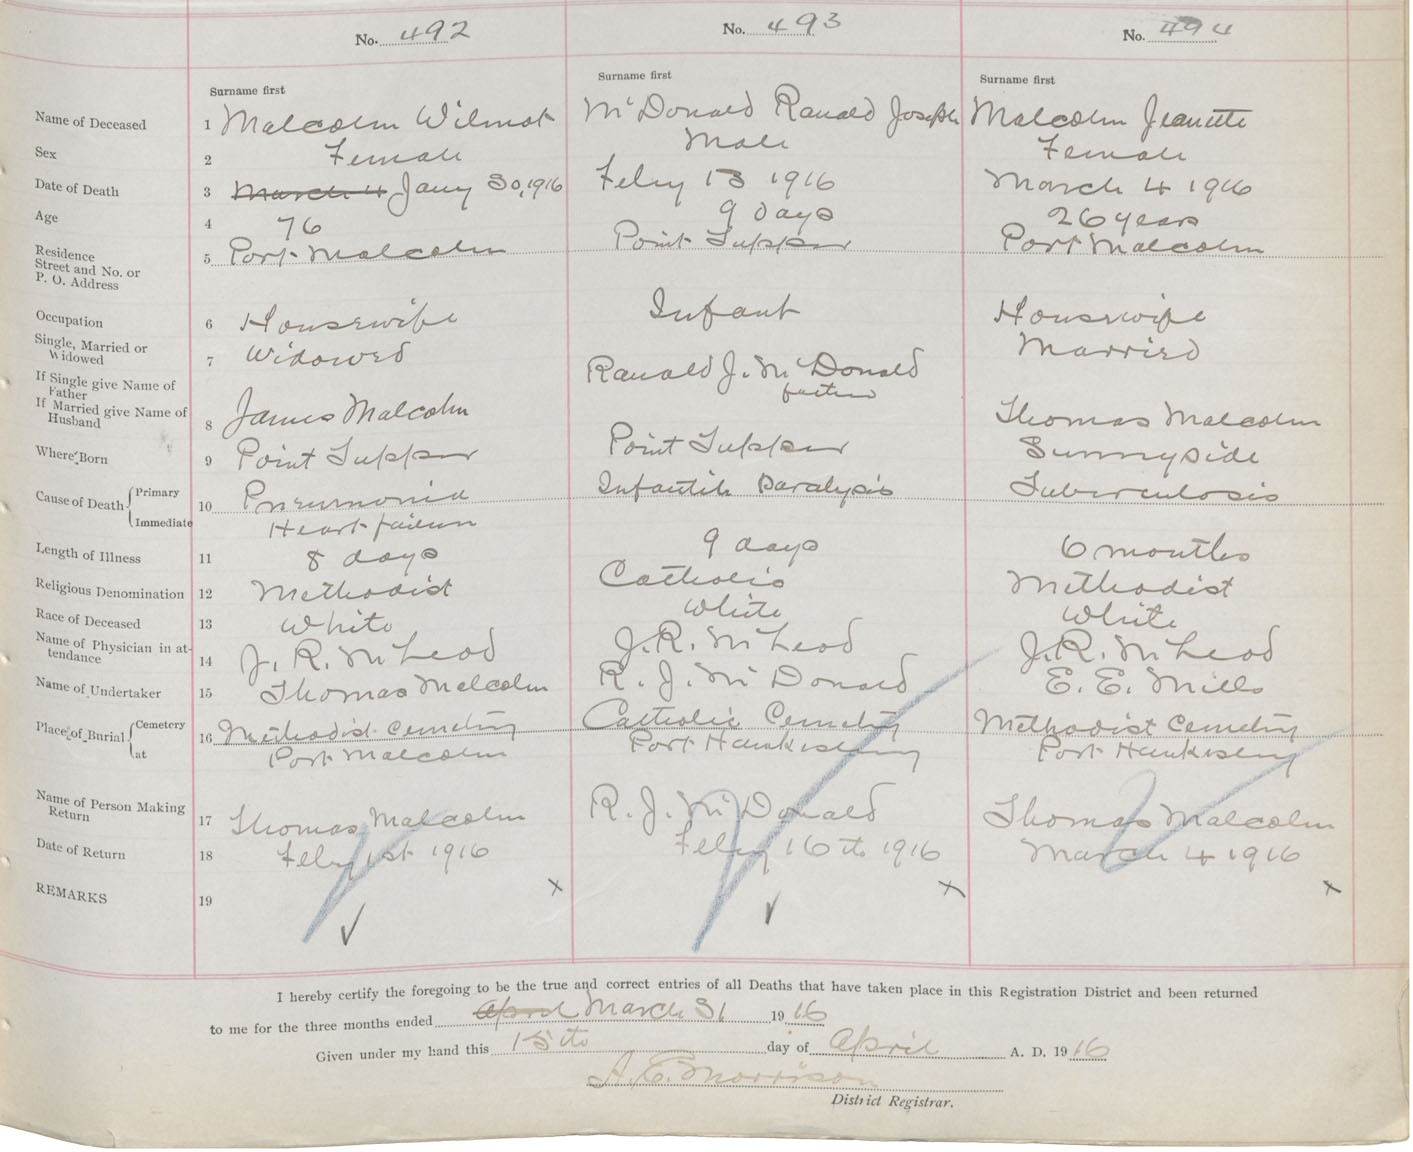 No. 492
No. 493
No. 494
Surname first
Surname first
Surname first
Name of Deceased 1 Malcolm Wilmot McDonald Ranald Joseph Malcolm Jeanette
Sex 2 Female Male Female
Date of Death 3 March 4 Jany 30, 1916 Feby 13 1916 March 4 1916
Age 4 76 9 days 26 years
Residence
Street and No. or
P. O. Address
5 Port Malcolm Point Tupper Port Malcolm
Occupation 6 Housewife Infant Housewife
Single, Married or
Widowed
7 Widowed Married
If Single give Name of
Father
If Married give Name of
Husband
Ranald J. McDonald
father
8 James Malcolm Thomas Malcolm
Where Born 9 Point Tupper Point Tupper Sunnyside
Cause of Death { Primary
10 Pneumonia Infantile Paralysis Tuberculosis
Immediate Heart failure
Length of Illness 11 8 days 9 days 6 months
Religious Denomination 12 Methodist Catholic Methodist
Race of Deceased 13 White White White
Name of Physician in at-
tendance
14 J. R. McLeod J. R. McLeod J. R. McLeod
Name of Undertaker 15 Thomas Malcolm R. J. McDonald E. E. Mills
Place of Burial { Cemetery
16 Methodist Cemetery Catholic Cemetery Methodist Cemetery
at Port Malcolm Port Hawkesbury Port Hawkesbury
Name of Person Making
Return
17 Thomas Malcolm R. J. McDonald Thomas Malcolm
Date of Return 18 Feby 1st 1916 Feby 16th 1916 March 4 1916
REMARKS 19 x x x
I hereby certify the foregoing to be the true and correct entries of all Deaths that have taken place in this Registration District and been returned
to me for the three months ended April March 31 1916
Given under my hand this 15th day of April A. D. 1916
A. E. Morrison
District Registrar.